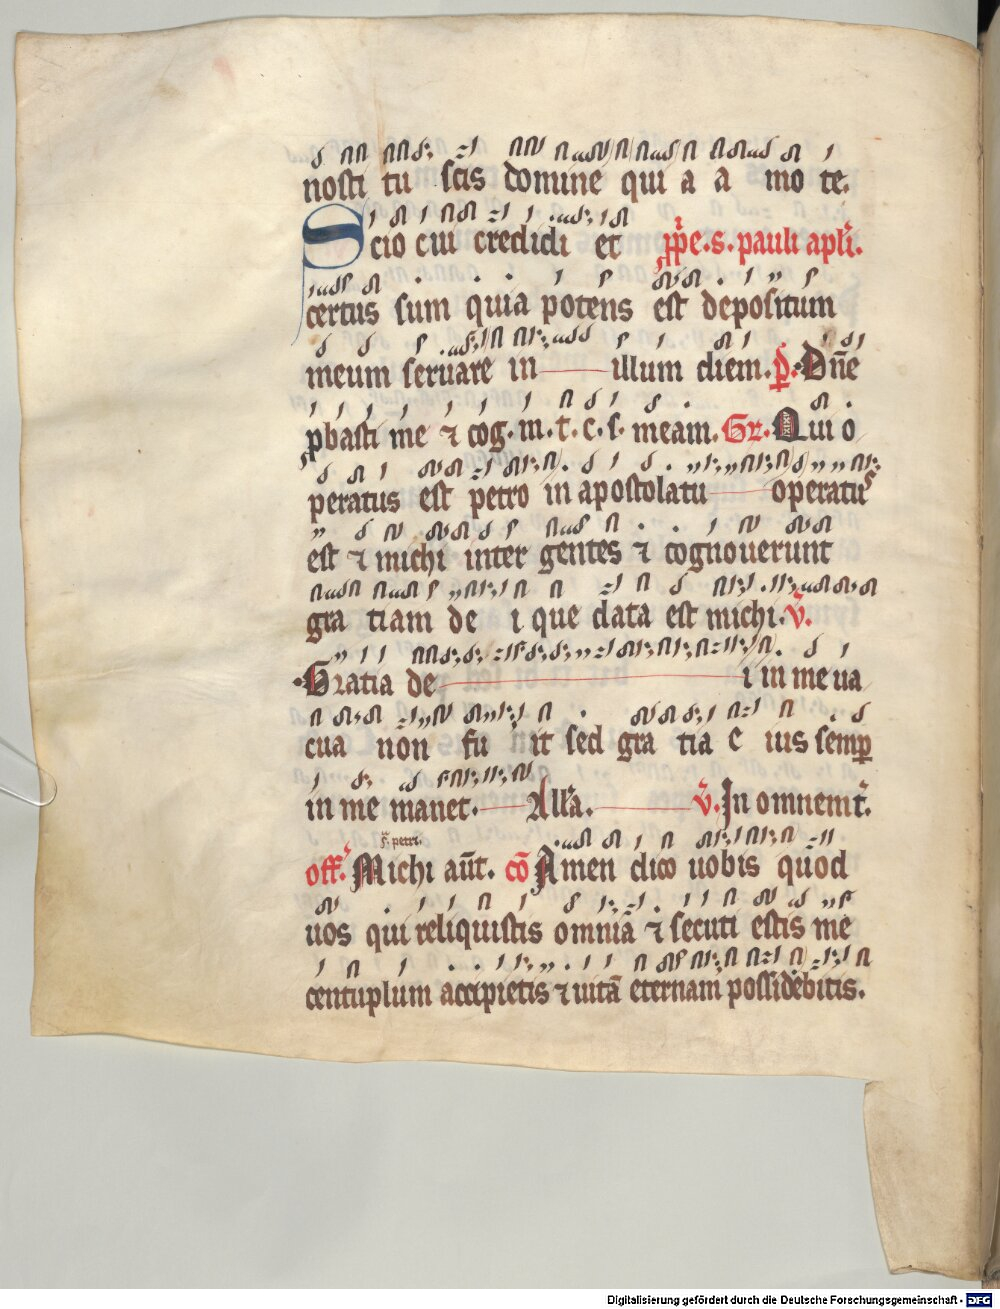 nosti tu scis domine qui a a mo te.
Scio cui credidi et pͥpͥe.s. pauli apłi.
certus sum quia potens est depositum
meum seruare in illum diem. p̄. Dn̄e
ꝓbasti me ⁊ cog. m. t. c. s. meam. Gr. Qui o
peratus est petro in apostolatu operatus
est ⁊ michi inter gentes ⁊ cognouerunt
gra tiam de i que data est michi. v̄.
Gratia de i in me ua
cua non fu it sed gra tia e ius semꝑ
in me manet. Allᷓa. v̄. In omnem t̄.
s. petri.
off. Michi aūt. cō Amen dico uobis quod
uos qui reliquistis omniā ⁊ secuti estis me
centuplum accipietis ⁊ uitā eternam possidebitis.
Digitalisierung gefördert durch die Deutsche Forschungsgemeinschaft - DFG